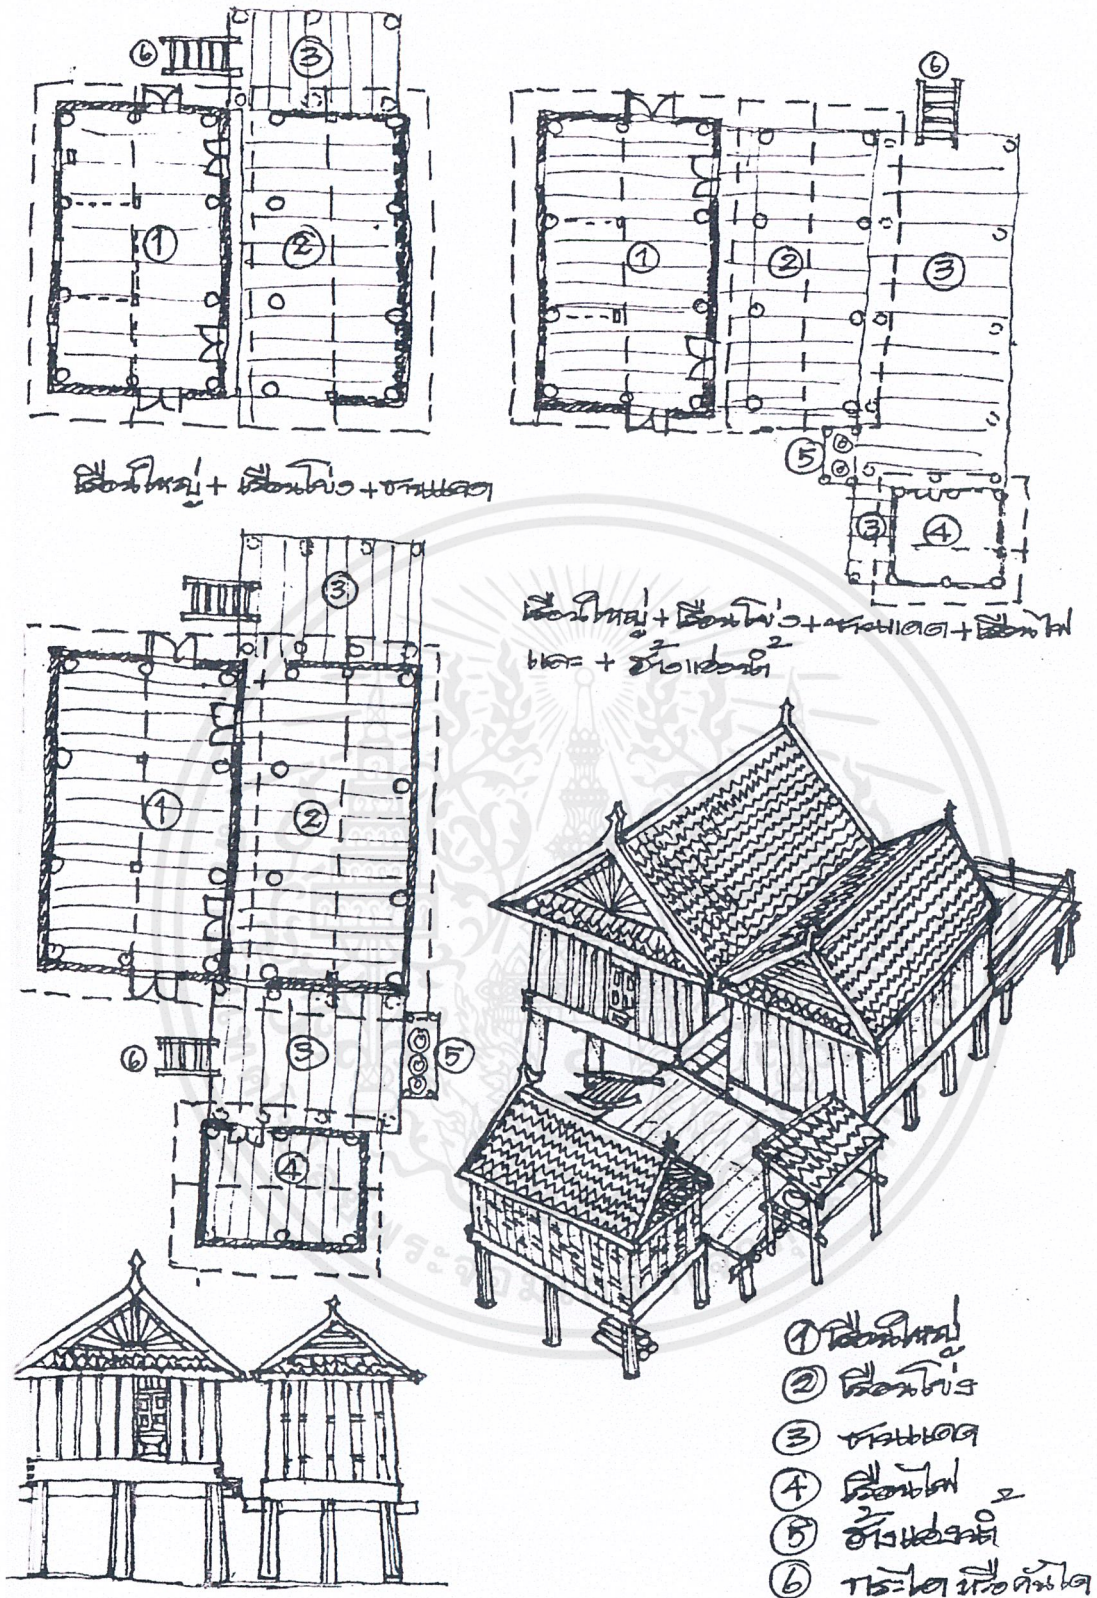 ⑥
③
⑥
①
②
①
②
③
⑤
③
④
เรือนใหญ่ + เรือนโข่ง + ชานแดด
เรือนใหญ่ + เรือนโข่ง + ชานแดด + เรือนไฟ
และ + ฮ้างแอ่งน้ำ
③
①
②
⑥
③
⑤
④
① เรือนใหญ่
② เรือนโข่ง
③ ชานแดด
④ เรือนไฟ
⑤ ฮ้างแอ่งน้ำ
⑥ กระได หรือ คันได